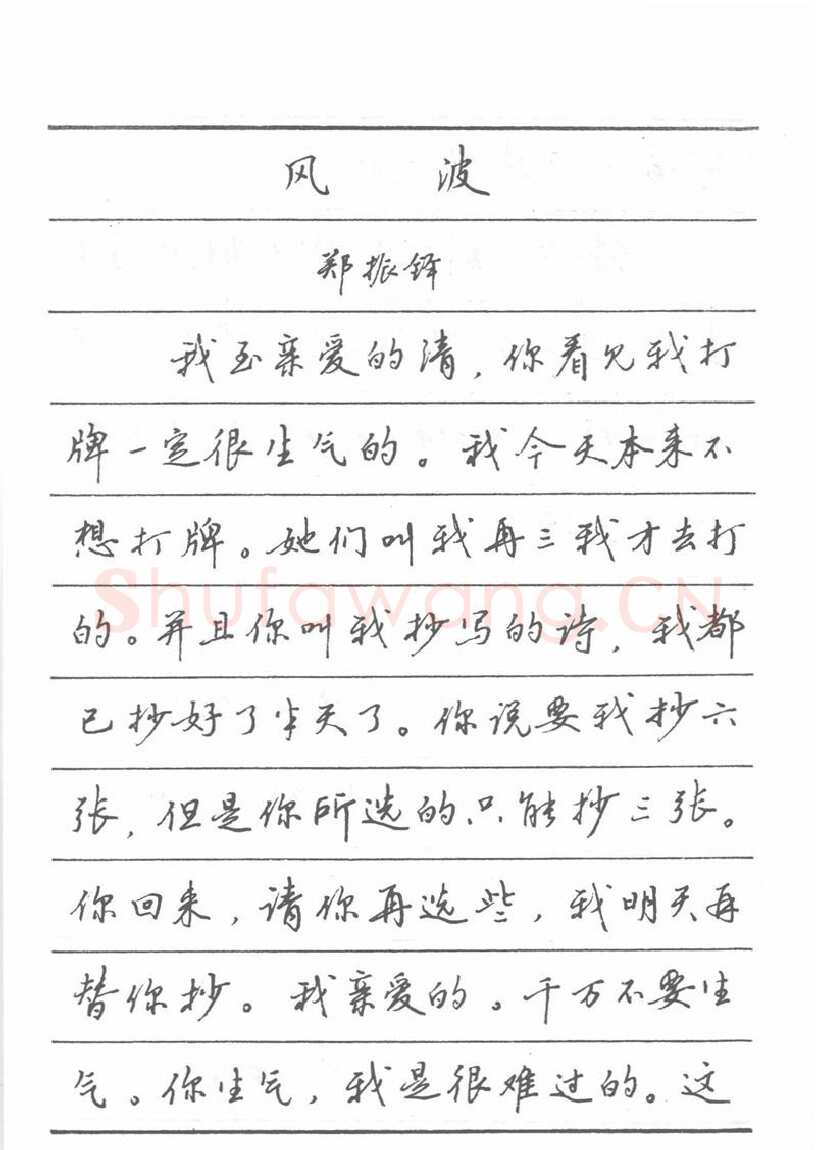 风 波
郑振铎
我至亲爱的清，你看见我打
牌一定很生气的。我今天本来不
想打牌。她们叫我再三我才去打
的。并且你叫我抄写的诗，我都
已抄好了半天了。你说要我抄六
张，但是你所选的只能抄三张。
你回来，请你再选些，我明天再
替你抄。我亲爱的。千万不要生
气。你生气，我是很难过的。这
Shufawang.CN